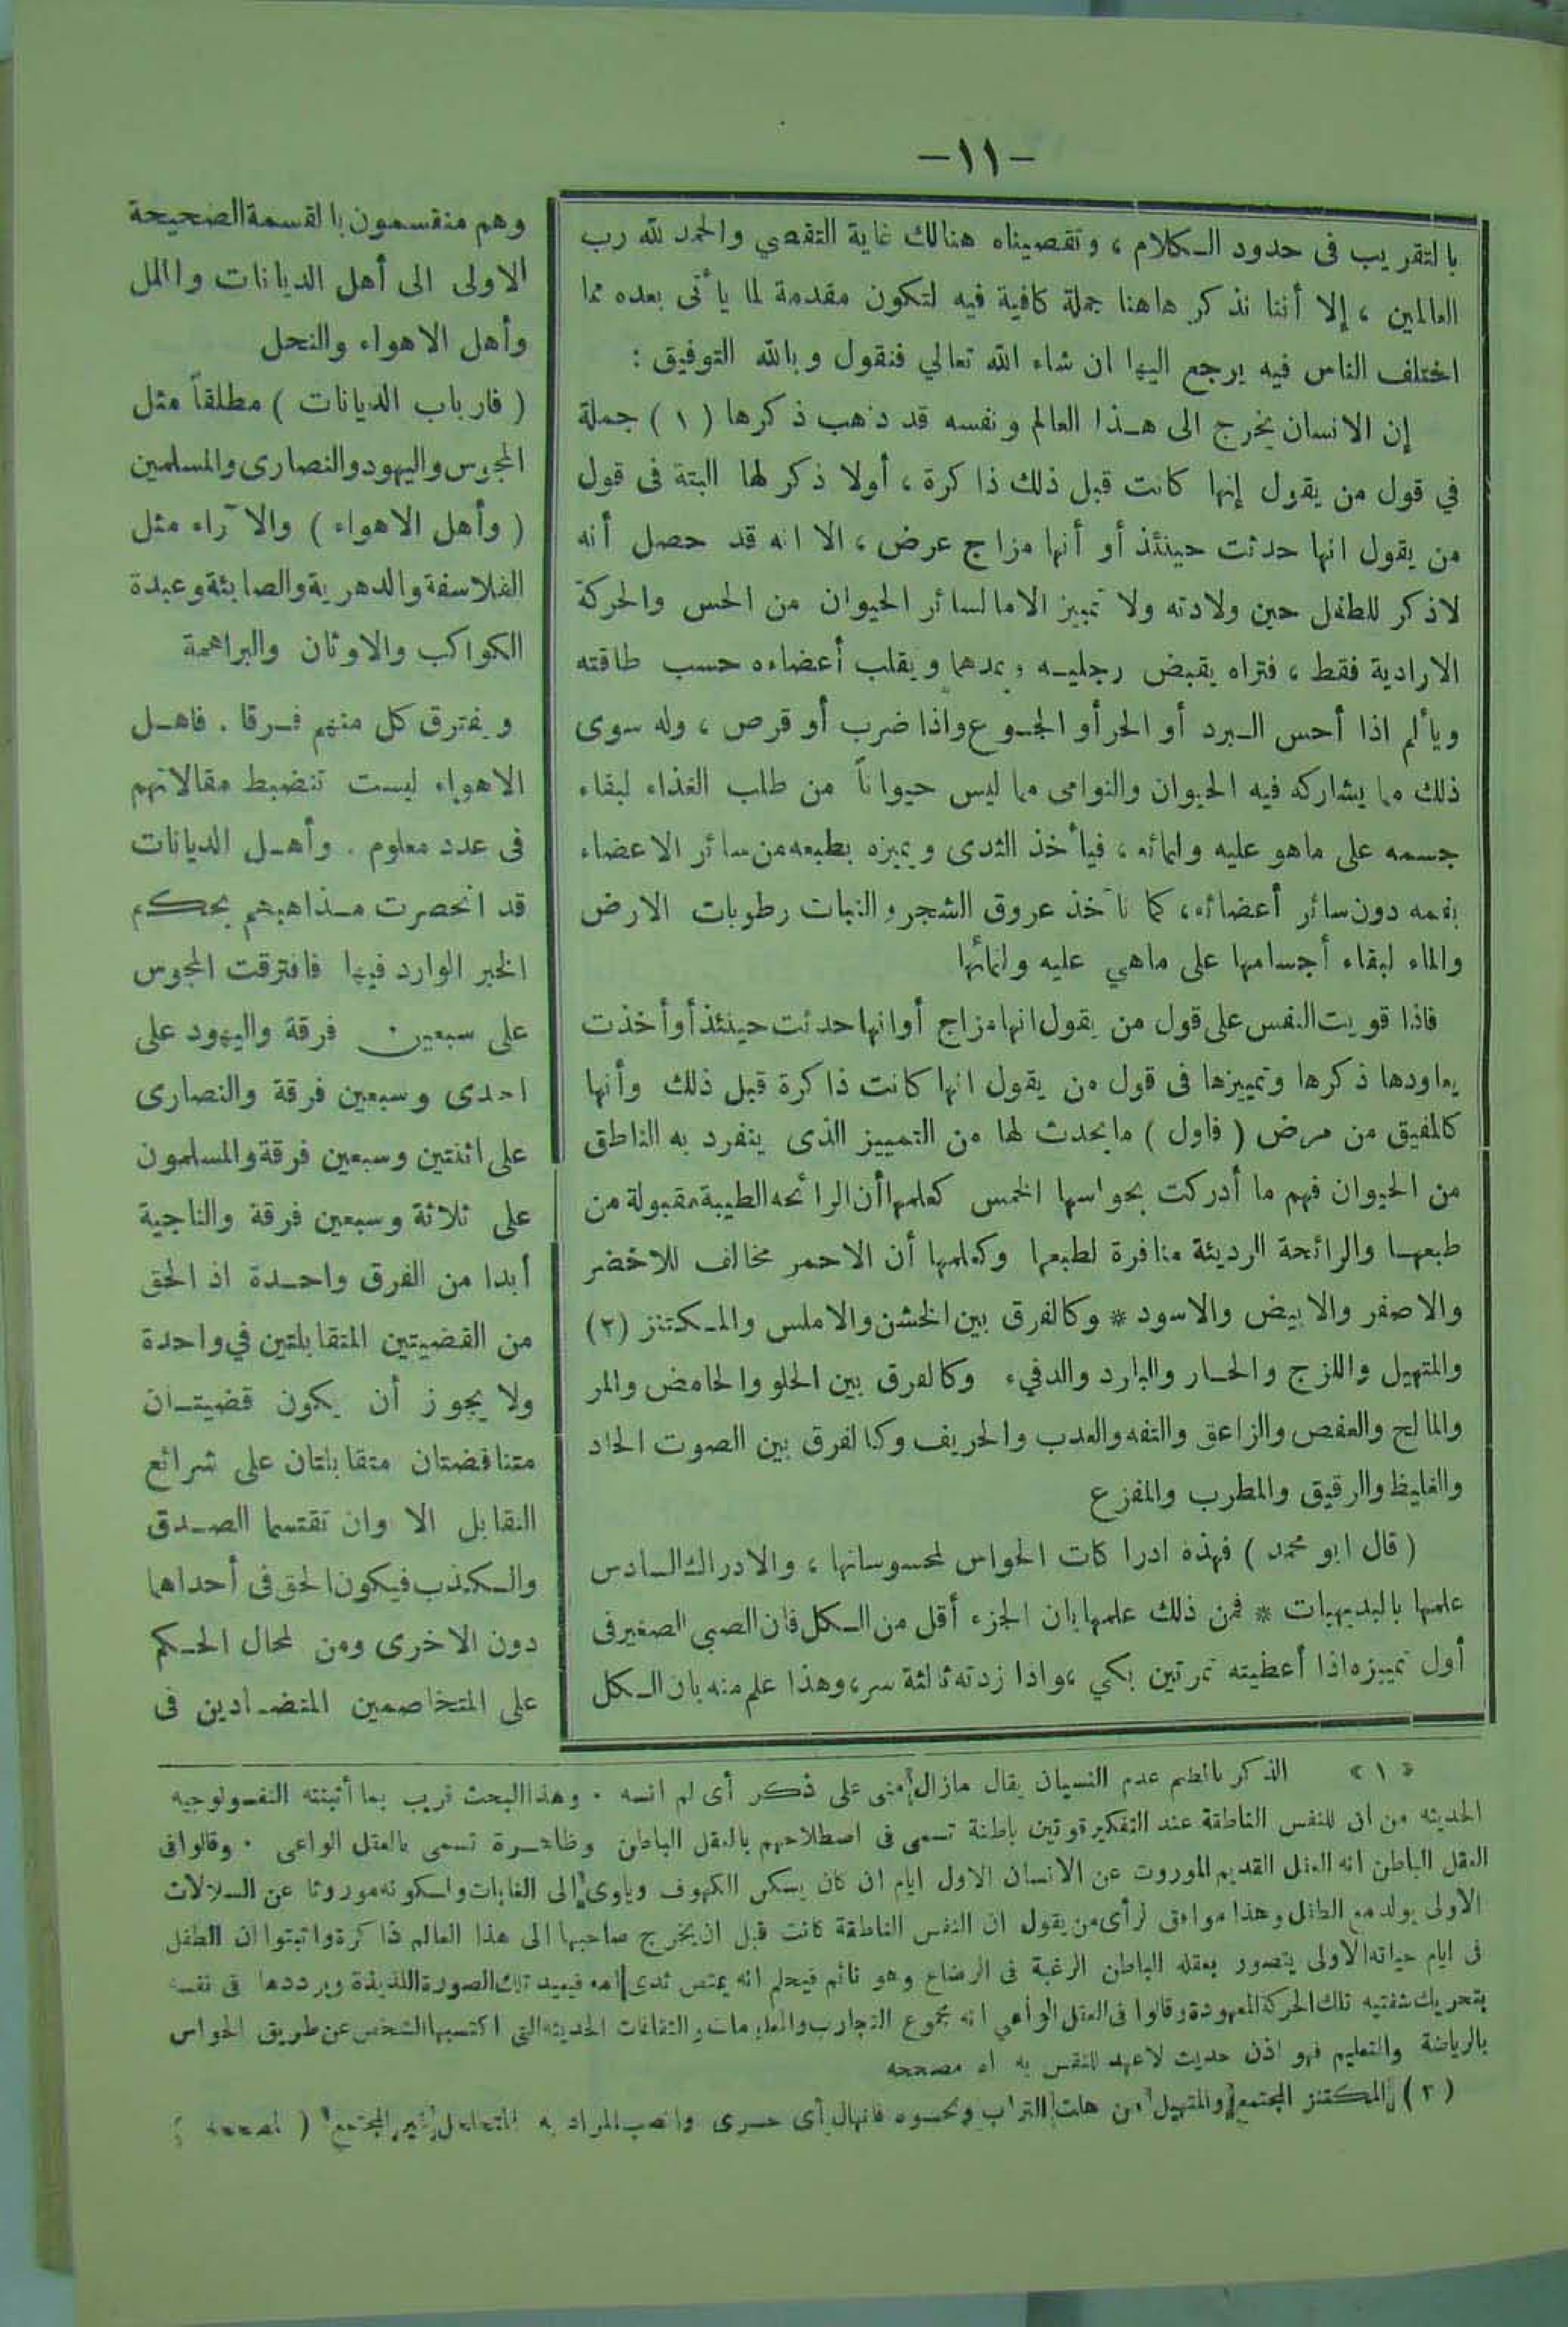 -١١-
بالتقريب فى حدود الكلام ، وتقصيناه هنالك غاية التقصي والحمد لله رب
العالمين ، إلا أننا نذكر هاهنا جملة كافية فيه لتكون مقدمة لما يأتى بعده مما
اختلف الناس فيه يرجع اليها ان شاء الله تعالي فنقول وبالله التوفيق :
إن الانسان يخرج الى هذا العالم ونفسه قد ذهب ذكرها ( ١ ) جملة
في قول من يقول إنها كانت قبل ذلك ذاكرة ، أولا ذكر لها البتة فى قول
من يقول انها حدثت حينئذ أو أنها مزاج عرض ، الا انه قد حصل أنه
لاذكر للطفل حين ولادته ولا تمييز الا ما لسائر الحيوان من الحس والحركة
الارادية فقط ، فتراه يقبض رجليه ويمدهما ويقلب أعضاءه حسب طاقته
ويألم اذا أحس البرد أو الحر أو الجوع واذا ضرب أو قرص ، وله سوى
ذلك مما يشاركه فيه الحيوان والنوامى مما ليس حيواناً من طلب الغذاء لبقاء
جسمه على ماهو عليه ولنمائه ، فيأخذ الثدى ويميزه بطبعه من سائر الاعضاء
بفمه دون سائر أعضائه ، كما تأخذ عروق الشجر والنبات رطوبات الارض
والماء لبقاء أجسامها على ماهي عليه ولنمائها
فاذا قويت النفس على قول من يقول انها مزاج أو انها حدثت حينئذ أو أخذت
يعاودها ذكرها وتمييزها فى قول من يقول انها كانت ذاكرة قبل ذلك وأنها
كالمفيق من مرض ( فاول ) ما يحدث لها من التمييز الذى ينفرد به الناطق
من الحيوان فهم ما أدركت بحواسها الخمس كعلمها أن الرائحه الطيبة مقبولة من
طبعها والرائحة الرديئة منافرة لطبعها وكعلمها أن الاحمر مخالف للاخضر
والاصفر والابيض والاسود * وكالفرق بين الخشن والاملس والمكتنز (٢)
والمتهيل واللزج والحار والبارد والدفيء وكالفرق بين الحلو والحامض والمر
والمالح والعفص والزاعق والتفه والعذب والحريف وكالفرق بين الصوت الحاد
والغليظ والرقيق والمطرب والمفزع
( قال ابو محمد ) فهذه ادراكات الحواس لمحسوساتها ، والادراك السادس
علمها بالبديهيات * فمن ذلك علمها بان الجزء أقل من الكل فان الصبي الصغير فى
أول تمييزه اذا أعطيته تمرتين بكي ، واذا زدته ثالثة سر ، وهذا علم منه بان الكل
وهم منقسمون بالقسمة الصحيحة
الاولى الى أهل الديانات والملل
وأهل الاهواء والنحل
( فارباب الديانات ) مطلقاً مثل
المجوس واليهود والنصارى والمسلمين
( وأهل الاهواء ) والآراء مثل
الفلاسفة والدهرية والصابئة وعبدة
الكواكب والاوثان والبراهمة
ويفترق كل منهم فرقا . فاهل
الاهواء ليست تنضبط مقالاتهم
فى عدد معلوم . وأهل الديانات
قد انحصرت مذاهبهم بحكم
الخبر الوارد فيها فافترقت المجوس
على سبعين فرقة واليهود على
احدى وسبعين فرقة والنصارى
على اثنتين وسبعين فرقة والمسلمون
على ثلاثة وسبعين فرقة والناجية
أبدا من الفرق واحدة اذ الحق
من القضيتين المتقابلتين في واحدة
ولا يجوز أن يكون قضيتان
متناقضتان متقابلتان على شرائع
التقابل الا وان تقتسما الصدق
والكذب فيكون الحق فى أحداهما
دون الاخرى ومن المحال الحكم
على المتخاصمين المتضادين فى
« ١ » الذكر بالضم عدم النسيان يقال مازال منى على ذكر أى لم انسه . وهذا البحث قريب بما أثبتته النفسولوجيه
الحديثه من ان للنفس الناطقة عند التفكير قوتين باطنة تسمى فى اصطلاحهم بالعقل الباطن وظاهرة تسمى بالعقل الواعى . وقالوا فى
العقل الباطن انه العقل القديم الموروث عن الانسان الاول ايام ان كان يسكن الكهوف وياوى الى الغابات ولكونه موروثا عن السلالات
الاولى يولد مع الطفل وهذا موافق لرأى من يقول ان النفس الناطقة كانت قبل ان يخرج صاحبها الى هذا العالم ذاكرة واثبتوا ان الطفل
فى ايام حياته الاولى يتصور بعقله الباطن الرغبة فى الرضاع وهو نائم فيحلم انه يمتص ثدى امه فيعيد تلك الصورة اللذيذة ويرددها فى نفسه
بتحريك شفتيه تلك الحركة المعهودة وقالوا فى العقل الواعي انه مجموع التجارب والمعلومات والثقافات الحديثه التى اكتسبها الشخص عن طريق الحواس
بالرياضة والتعليم فهو اذن حديث لاعهد للنفس به اه مصححه
( ٢ ) المكتنز المجتمع والمتهيل من هلت التراب ونحوه فانهال أى جرى وانصب المراد به المتخلخل غير المجتمع ( لمصححه )